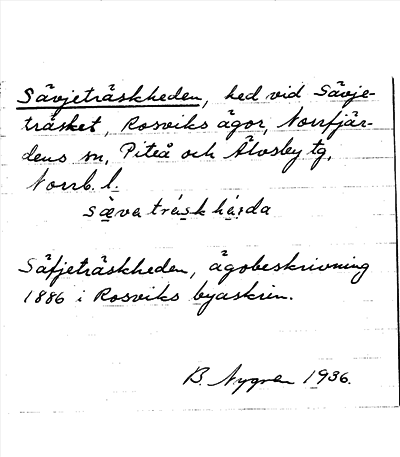 Sävjeträskheden, hed vid Sävje-
träsket, Rosviks ägor, Norrfjär-
dens sn, Piteå och Älvsby tg,
Norrb. l.
sä̀va trás̱k hé̱da
Säfjeträskheden, ägobeskrivning
1886 i Rosviks byaskrin.
B. Nygren 1936.